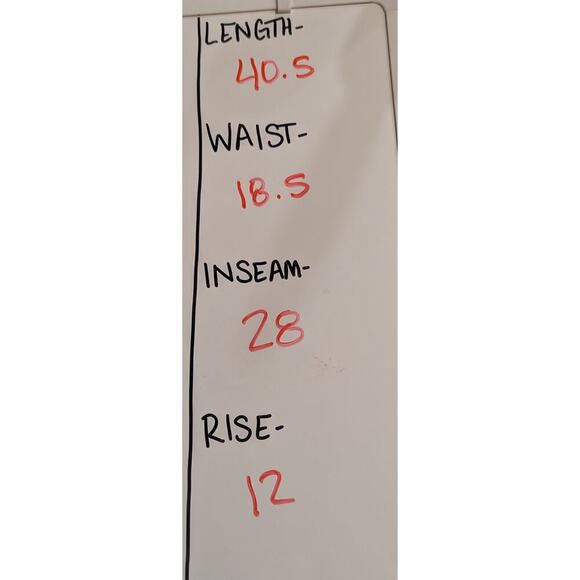 LENGTH-
40.5
WAIST-
18.5
INSEAM-
28
RISE-
12